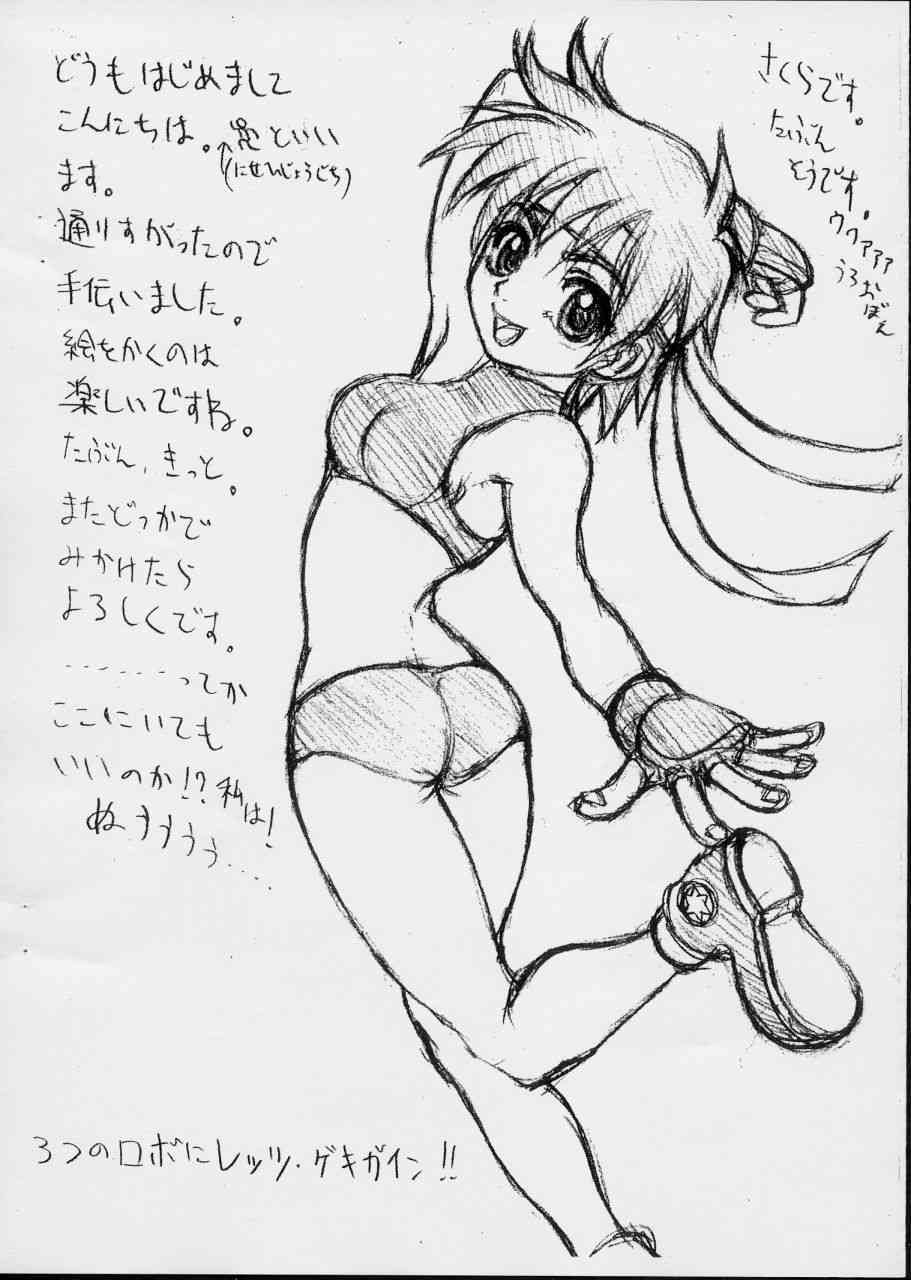 どうもはじめまして
こんにちは。といい
(にせいじょうじち)
ます。
通りすがったので
手伝いました。
絵をかくのは
楽しいですね。
たぶん、きっと。
またどっかで
みかけたら
よろしくです。
………ってか
ここにいても
いいのか!?私は!
ぬぅぅぅぅ…
さくらです。
たぶん
そうです。
ウウァァァ
うろおぼえ
3つのロボにレッツ・ゲキガイン!!